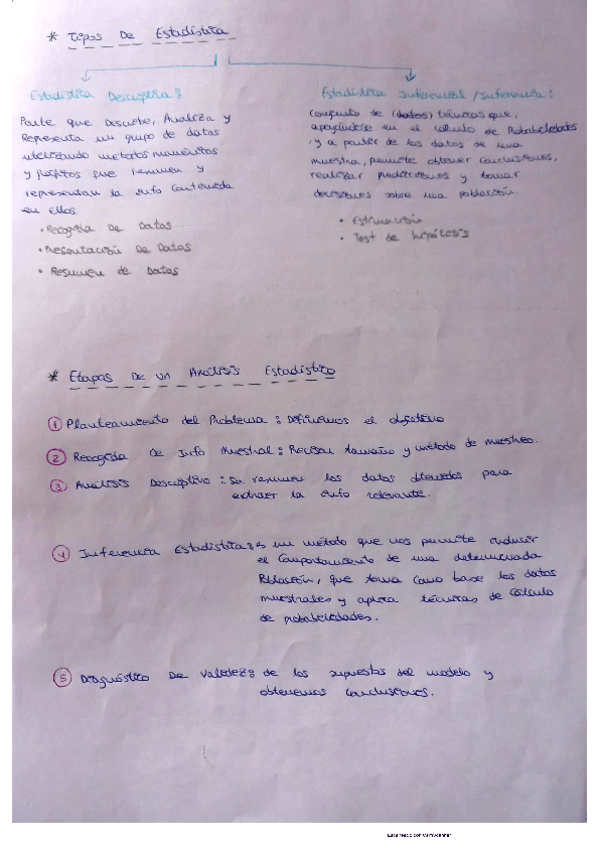 * Tipos De Estadística
Estadística Descriptiva:
Parte que Describe, Analiza y
Representa un grupo de datos
utilizando métodos numéricos
y gráficos que resumen y
representan la info contenida
en ellos.
• Recogida De Datos
• Presentación De Datos
• Resumen de Datos
Estadística Inferencial / Inferencia:
Conjunto de (datos) técnicas que,
apoyándose en el cálculo de Probabilidades
y a partir de los datos de una
muestra, permite obtener conclusiones,
realizar predicciones y tomar
decisiones sobre una población.
• Estimación
• Test de hipótesis
* Etapas De un Análisis Estadístico
1 Planteamiento del Problema: Definimos el objetivo
2 Recogida De Info Muestral: tamaño y método de muestreo.
3 Análisis Descriptivo: Se resumen los datos obtenidos para
extraer la info relevante.
4 Inferencia Estadística: es un método que nos permite inducir
el Comportamiento de una determinada
Población, que toma como base los datos
muestrales y aplica técnicas de cálculo
de probabilidades.
5 Diagnóstico De Validez: de los supuestos del modelo y
obtenemos conclusiones.